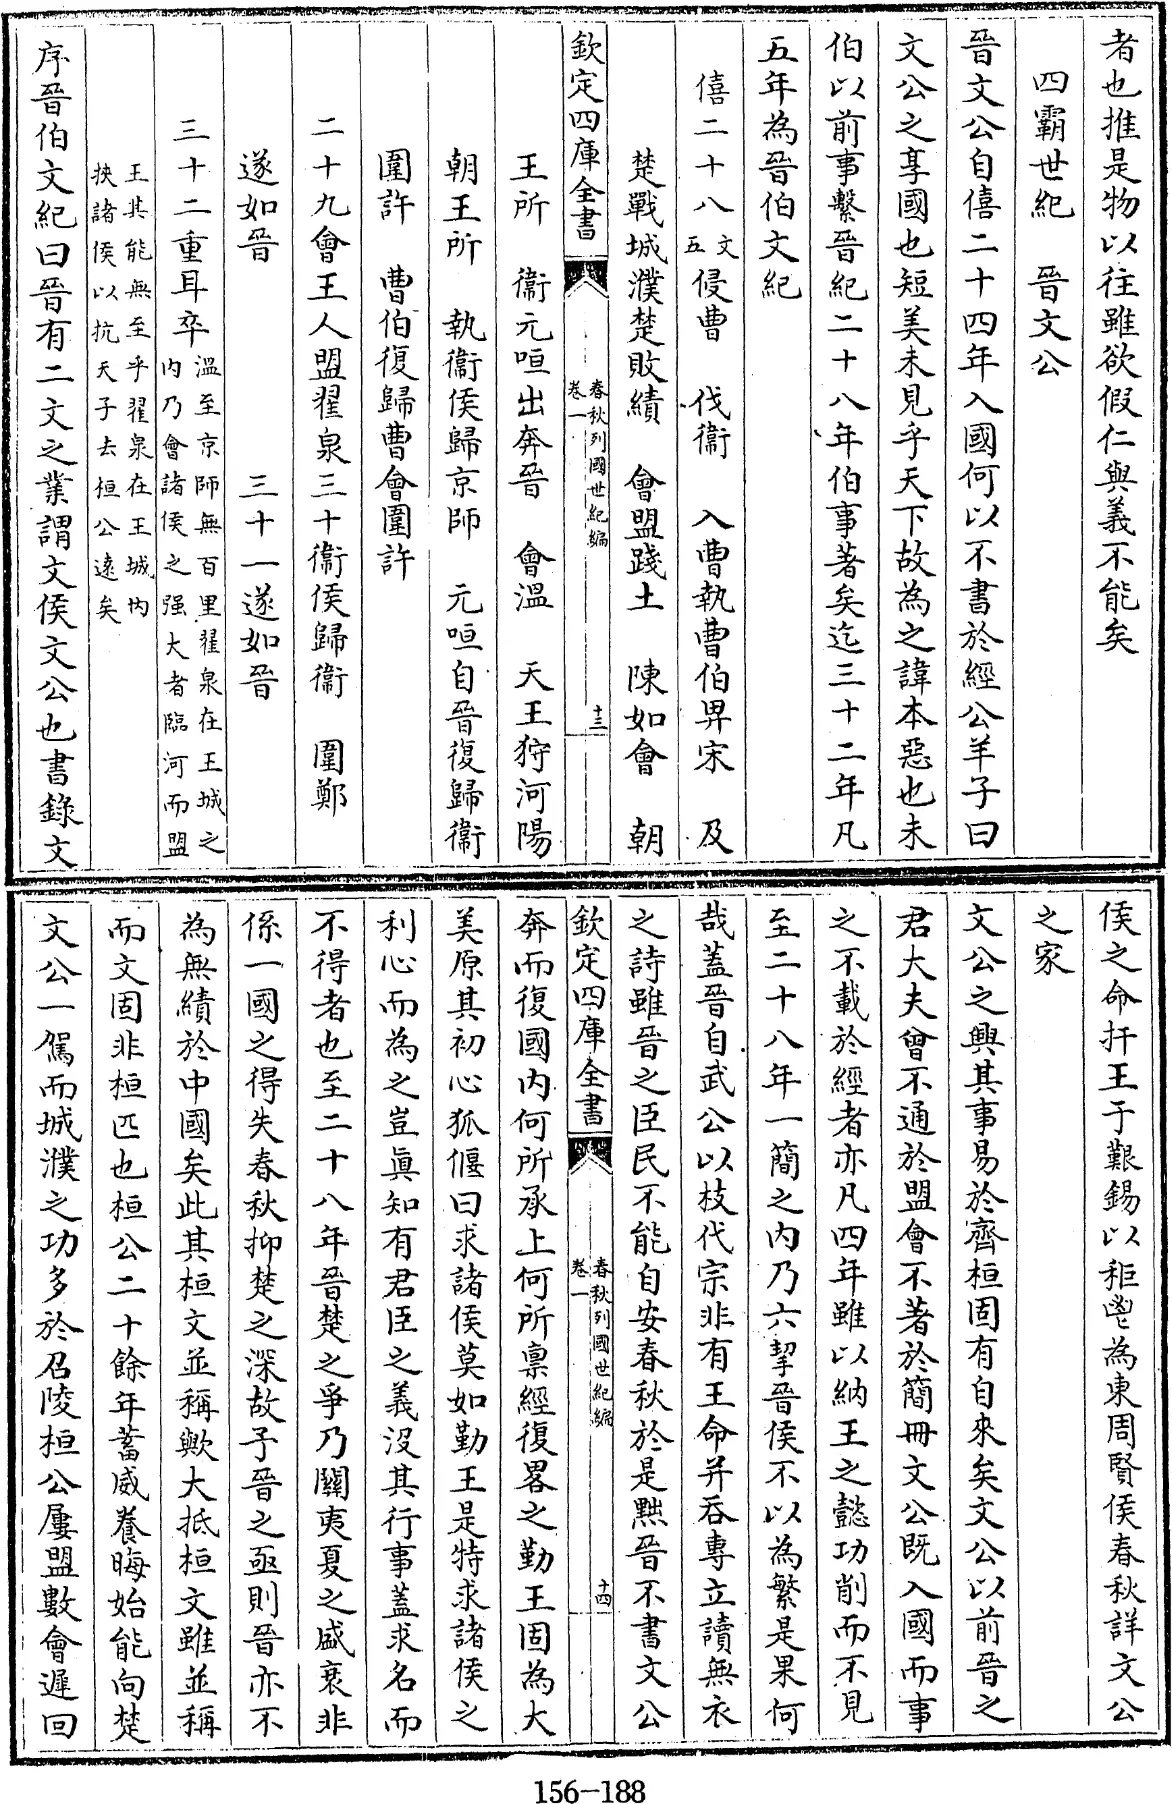 者也推是物以往雖欲假仁與義不能矣
四霸世紀　晉文公
晉文公自僖二十四年入國何以不書於經公羊子曰
文公之享國也短美未見乎天下故為之諱本惡也未
伯以前事繫晉紀二十八年伯事著矣迄三十二年凡
五年為晉伯文紀
僖二十八文五侵曹　伐衞　入曹執曹伯畀宋　及
楚戰城濮楚敗績　會盟踐土　陳如會　朝
欽定四庫全書　春秋列國世紀編卷一　十三
王所　衞元咺出奔晉　會溫　天王狩河陽
朝王所　執衞侯歸京師　元咺自晉復歸衞
圍許　曹伯復歸曹會圍許
二十九會王人盟翟泉三十衞侯歸衞　圍鄭
遂如晉　三十一遂如晉
三十二重耳卒溫至京師無百里翟泉在王城之內乃會諸侯之强大者臨河而盟
王其能無至乎翟泉在王城內挾諸侯以抗天子去桓公遠矣
序晉伯文紀曰晉有二文之業謂文侯文公也書錄文
侯之命扞王于艱錫以秬鬯為東周賢侯春秋詳文公
之家
文公之興其事易於齊桓固有自來矣文公以前晉之
君大夫曾不通於盟會不著於簡冊文公既入國而事
之不載於經者亦凡四年雖以納王之懿功削而不見
至二十八年一簡之內乃六挈晉侯不以為繁是果何
哉蓋晉自武公以枝代宗非有王命并吞專立讀無衣
之詩雖晉之臣民不能自安春秋於是黜晉不書文公
欽定四庫全書　春秋列國世紀編卷一　十四
奔而復國內何所承上何所禀經復畧之勤王固為大
美原其初心狐偃曰求諸侯莫如勤王是特求諸侯之
利心而為之豈眞知有君臣之義沒其行事蓋求名而
不得者也至二十八年晉楚之爭乃關夷夏之盛衰非
係一國之得失春秋抑楚之深故予晉之亟則晉亦不
為無績於中國矣此其桓文並稱歟大抵桓文雖並稱
而文固非桓匹也桓公二十餘年蓄威養晦始能向楚
文公一駕而城濮之功多於召陵桓公屢盟數會遲回
156-188